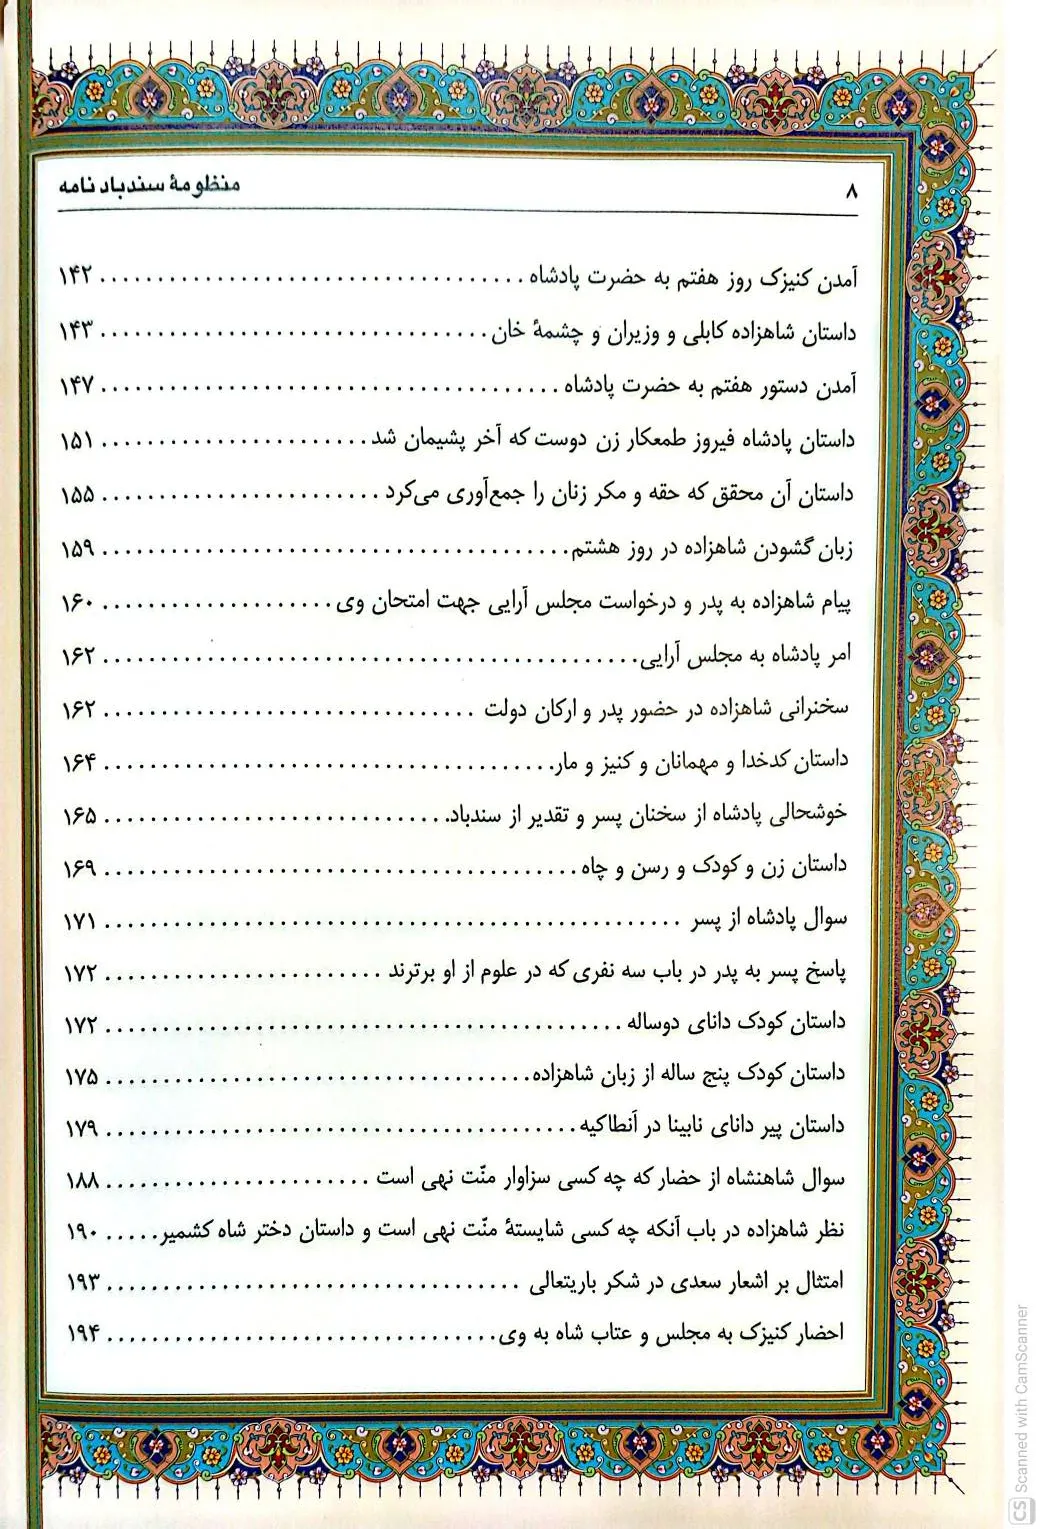 ۸ منظومهٔ سندباد نامه
آمدن کنیزک روز هفتم به حضرت پادشاه ..................................... ۱۴۲
داستان شاهزاده کابلی و وزیران و چشمهٔ خان .................................. ۱۴۳
آمدن دستور هفتم به حضرت پادشاه ........................................ ۱۴۷
داستان پادشاه فیروز طمعکار زن دوست که آخر پشیمان شد ....................... ۱۵۱
داستان آن محقق که حقه و مکر زنان را جمع‌آوری می‌کرد ........................ ۱۵۵
زبان گشودن شاهزاده در روز هشتم ......................................... ۱۵۹
پیام شاهزاده به پدر و درخواست مجلس آرایی جهت امتحان وی .................... ۱۶۰
امر پادشاه به مجلس آرایی ............................................... ۱۶۲
سخنرانی شاهزاده در حضور پدر و ارکان دولت ................................ ۱۶۲
داستان کدخدا و مهمانان و کنیز و مار ....................................... ۱۶۴
خوشحالی پادشاه از سخنان پسر و تقدیر از سندباد .............................. ۱۶۵
داستان زن و کودک و رسن و چاه ......................................... ۱۶۹
سوال پادشاه از پسر .................................................. ۱۷۱
پاسخ پسر به پدر در باب سه نفری که در علوم از او برترند ........................ ۱۷۲
داستان کودک دانای دوساله ............................................. ۱۷۲
داستان کودک پنج ساله از زبان شاهزاده ..................................... ۱۷۵
داستان پیر دانای نابینا در آنطاکیه ......................................... ۱۷۹
سوال شاهنشاه از حضار که چه کسی سزاوار منّت نهی است ....................... ۱۸۸
نظر شاهزاده در باب آنکه چه کسی شایستهٔ منّت نهی است و داستان دختر شاه کشمیر ..... ۱۹۰
امتثال بر اشعار سعدی در شکر باریتعالی .................................... ۱۹۳
احضار کنیزک به مجلس و عتاب شاه به وی .................................. ۱۹۴
CS Scanned with CamScanner